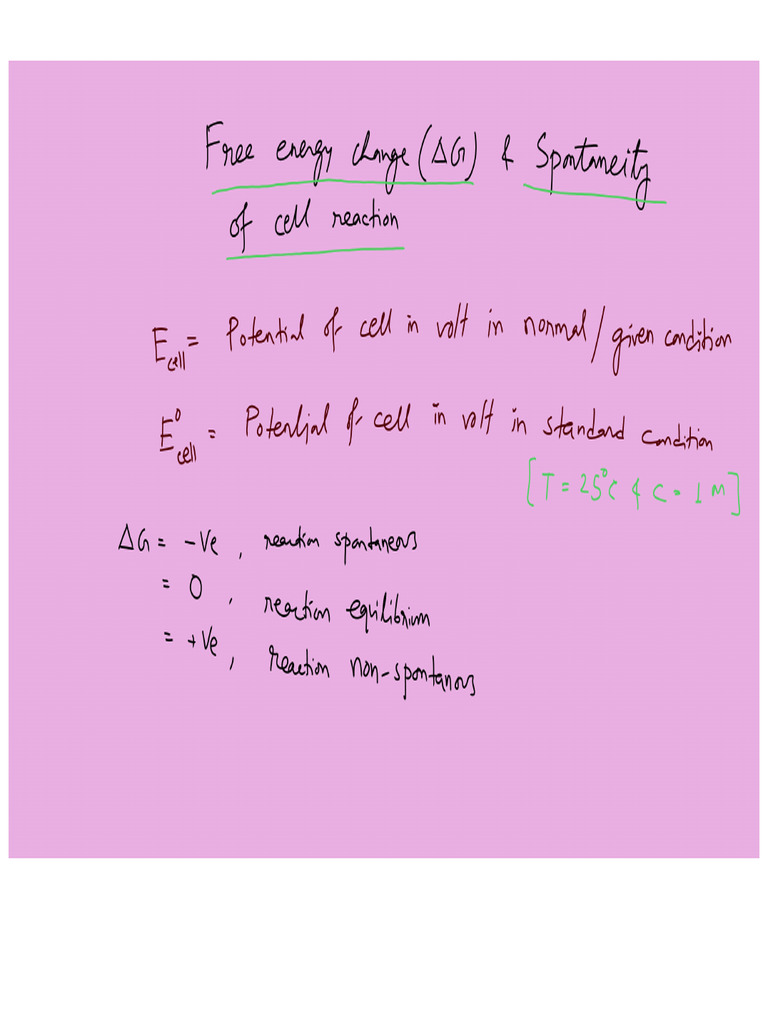 Free energy change (ΔG) & Spontaneity
of cell reaction
E cell = Potential of cell in volt in normal / given condition
E⁰ cell = Potential of cell in volt in standard condition
[T = 25⁰C & C = 1 M]
ΔG = -Ve , reaction spontaneous
= 0 , reaction equilibrium
= +Ve , reaction non-spontanous